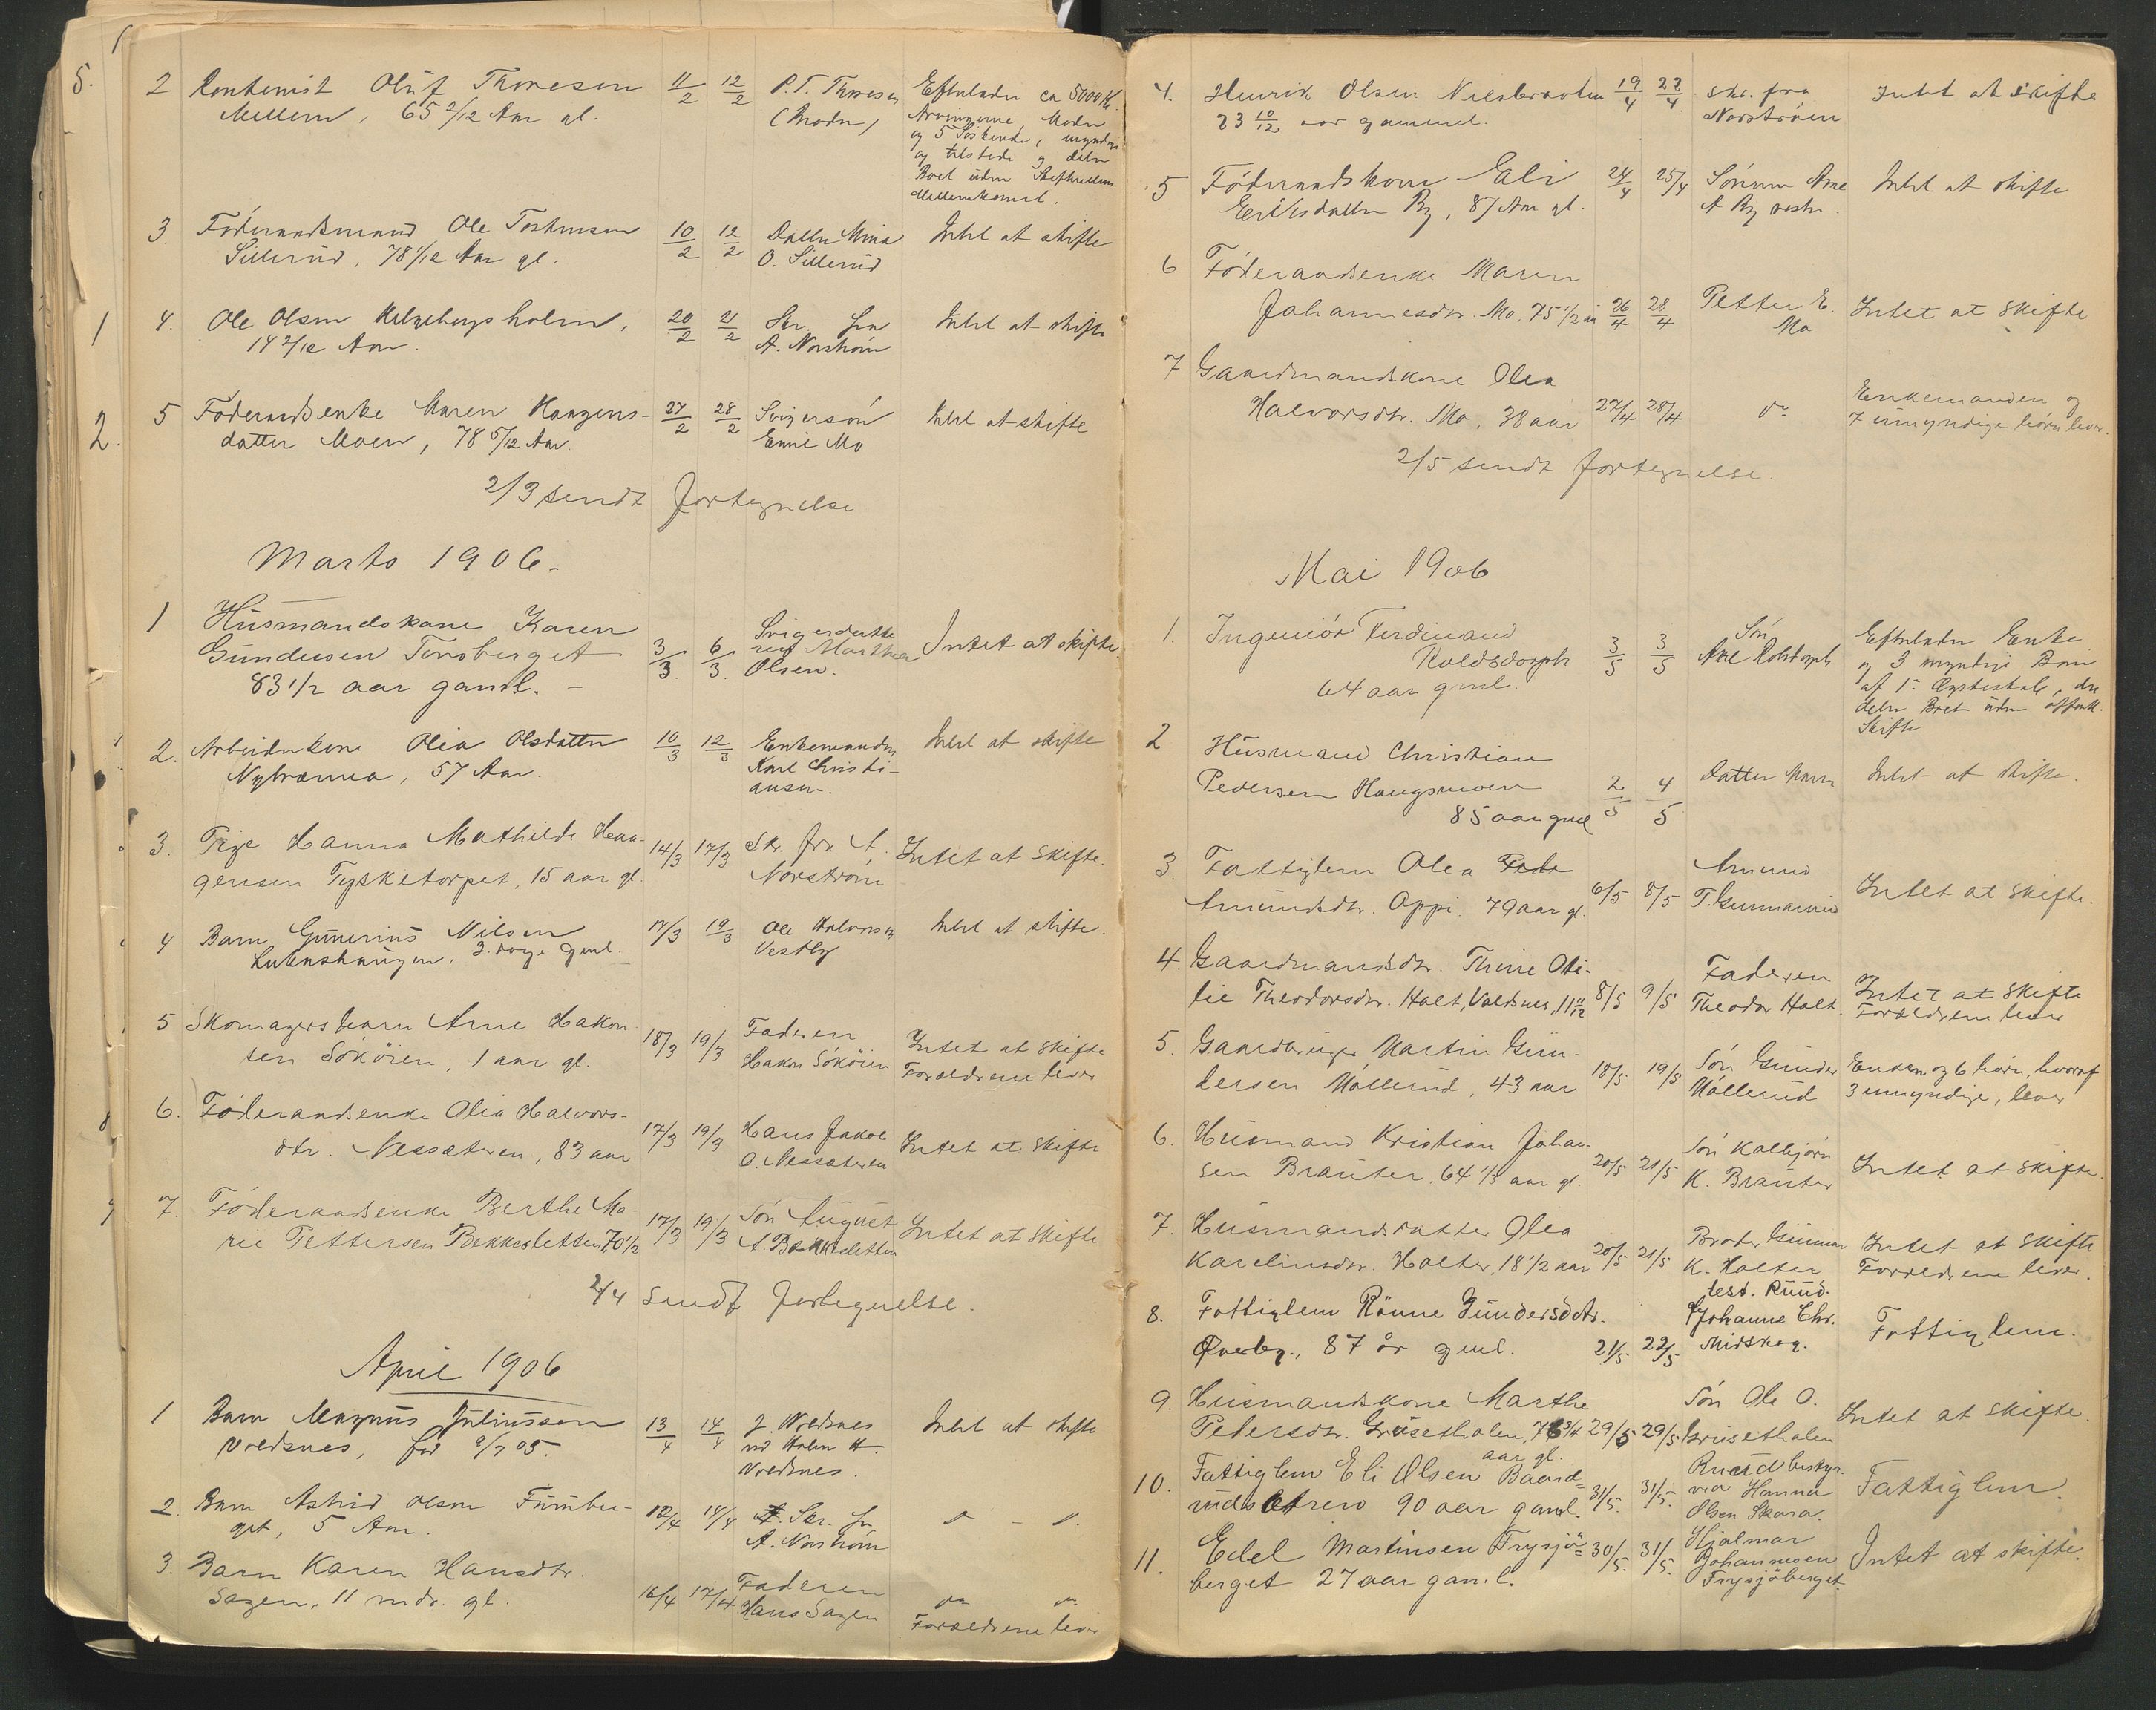 5.
2 Rentenist Oluf Thoresen 11/2 12/2 P. T. Thoresen Efterlader ca 5000 Kr.
Mellem, 65 2/12 Aar gl. (Broder) Arvingerne, Moder
og 5 Söskende, myndige
og tilstede og deler
Boet uden Skifterettens
Mellemkomst.
3. Föderaadsmand Ole Torkersen 10/2 12/2 Datter Mina Intet at skifte
Sillerud, 78 1/12 Aar gl. O. Sillerud
1 4. Ole Olsen Helgebergsholm, 20/2 21/2 Skr. fra Intet at skifte
14 2/12 Aar. A. Norström
2. 5 Föderaadsenke Maren Haagens- 27/2 28/2 Svigersön Intet at skifte
datter Moen, 78 5/12 Aar. Emil Mo
2/3 sendt Fortegnelse
Marts 1906.
1 Husmandskone Karen Svigerdatte
Gundersen Torsberget 3/3. 6/3. ren Marthea Intet at skifte.
83 1/2 aar gaml. Olsen.
2. Arbeiderkone Olia Olsdatter 10/3 12/3 Enkemanden Intet at skifte
Nybrænna, 57 Aar. Karl Christi-
ansen.
3. Pige Hanna Mathilde Haa- 14/3 17/3 Skr. fra A. Intet at skifte.
gensen Tysketorpet, 15 aar gl. Norström
4 Barn Gunerius Nilsen 17/3 19/3 Ole Halvorsen Intet at skifte.
3 dage gml. Vestby
5 Skomagersbarn Arne Hakon- 18/3 19/3 Faderen Intet at skifte
sen Sököien, 1 aar gl. Hakon Sököien Forældrene lever
6. Föderaadsenke Olia Halvors- 17/3 19/3 Hans Jakob Intet at skifte
dtr. Nessæteren, 83 aar O. Nessæteren
7. Föderaadsenke Berthe Ma- 17/3 19/3 Sön August Intet at skifte
rie Pettersen Bekkesletten, 70 1/2 A. Bekkesletten
2/4 sendt fortegnelse.
April 1906
1 Barn Magnus Juliussen 13/4 14/4 J. Voldsnes Intet at skifte
Voldsnes, fød 9/7 05. ved Halvor H.
Voldsnes.
2. Barn Astrid Olsen Furuber- 12/4 14/4 Skr. fra " - ".
get, 5 Aar. A. Norström
3. Barn Karen Hansdtr. 16/4 17/4 Faderen do do
Sagen, 11 mdr. gl. Hans Sagen Forældrene lever
4. Henrik Olsen 19/4 22/4 Skr. fra Intet at skifte
23 10/12 aar gammel. Norström
5 Föderaadskone Eli 24/4 25/4 Sönnen Arne Intet at skifte
Eriksdatter By, 81 Aar gl. A By
6 Föderaadsenke Maren
Johannesdtr. Mo, 75 1/2 a 26/4 28/4 Petter E. Intet at skifte
Mo
7 Gaardmandskone Olea Enkemanden og
Halvorsdtr. Mo, 38 aar 27/4 28/4 do 7 umyndige börn lever.
2/5 sendt fortegnelse.
Mai 1906
1. Ingeniör Ferdinand 3/5 3/5 Sön Efterlader Enke
Roldsdorph Axel Roldsdorph og 3 myndige Börn
64 aar gml. af 1ste Ægteskab, der
deler Boet uden offentl.
Skifte
2 Husmand Christian Datter Maren Intet at skifte.
Pedersen Haugsmoen 2/5 4/5
85 aar gml
3. Fattiglem Olea Amund
Amundsdtr. Oppi, 79 aar gl. 6/5 8/5 T. Gunnarud Intet at skifte.
4. Gaardmandsdtr. Thine Oti- Faderen Intet at skifte
lie Theodorsdtr. Holt, Voldsnes, 11 11/12 8/5 9/5 Theodor Holt. Forældrene lever
5. Gaardbruger Martin Gun- 18/5 19/5 Sön Gunder Enken og 6 börn, hvoraf
dersen Möllerud, 43 aar Möllerud 3 umyndige, lever
6. Husmand Kristian Johan- 20/5 21/5 Sön Kolbjörn Intet at skifte.
sen Brauter, 64 1/3 aar gl. K. Brauter
7. Husmandsdatter Olea 20/5 21/5 Broder Gunnar Intet at skifte
Karelinsdtr. Holter, 18 1/2 aar K. Holter Forældrene lever.
best. Ruud.
8. Fattiglem Rönne Gundersdtr. Johanne Chr. Fattiglem.
Overby., 87 år gml. 21/5. 22/5 Midskog.
9. Husmandskone Marthe Sön Ole O. Intet at skifte.
Pedersdtr. Grusetholen, 76 3/4 29/5 29/5 Grusetholen
aar gl.
10. Fattiglem Eli Olsen Baard- 31/5. 31/5. Ruud bestyr. Fattiglem.
rudsætren 90 aar gaml. ved Hanna
Olsen Skara.
11. Edel Martinsen Frysjö- 30/5. 31/5. Hjalmar Intet at skifte.
berget 27 aar gaml. Johannesen
Frysjöberget.